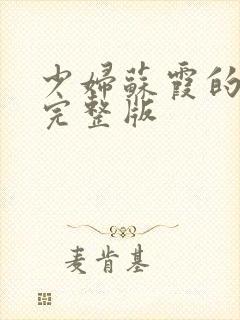 少婦蘇霞的
完整版
麦肯基